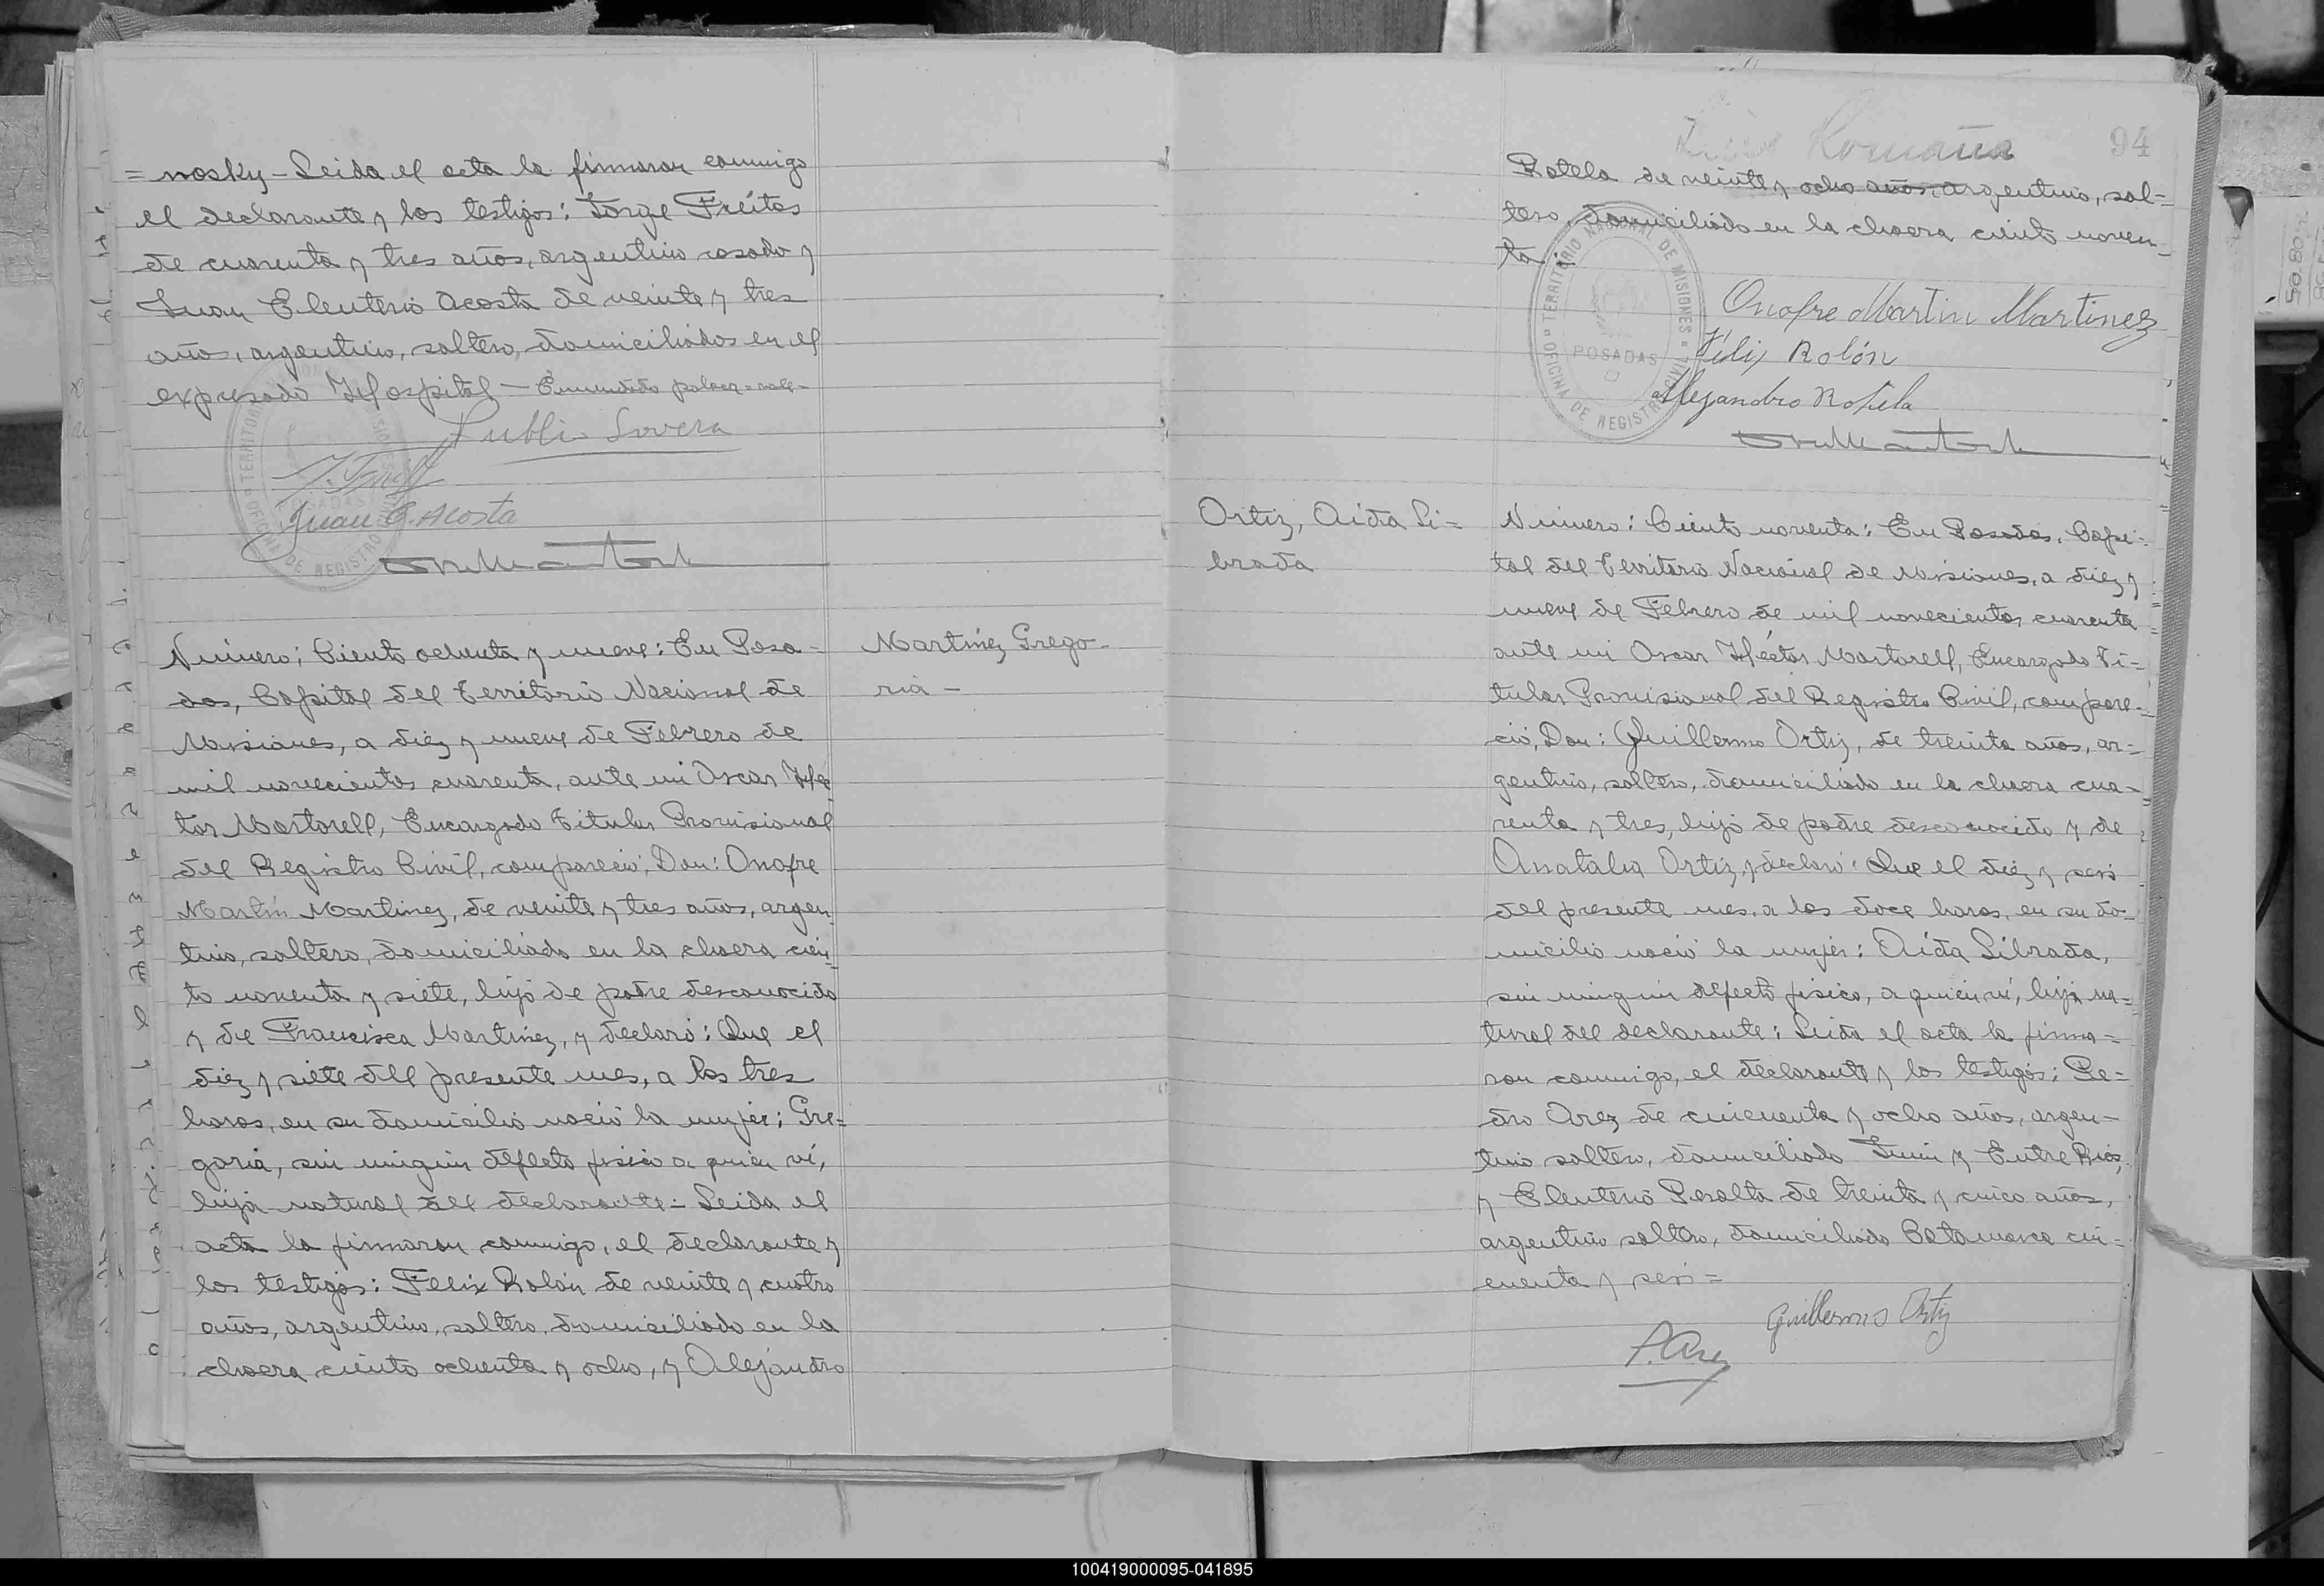 = nosky - Leida el acta la firmaron conmigo
el declarante y los testigos: Jorge Freitas
de cuarenta y tres años, argentino casado y
Juan Eleuterio Acosta de veinte y tres
años, argentino, soltero, domiciliados en el
expresado Hospital - Enmendado palaca = vale -
Publio Lovera
Juan E. Acosta
Número: Ciento ochenta y nueve: En Posa-
das, Capital del Territorio Nacional de
Misiones, a diez y nueve de Febrero de
mil novecientos cuarenta, ante mi Oscar Héc
tor Martorell, Encargado Titular Provisional
del Registro Civil, compareció: Don: Onofre
Martín Martinez, de veinte y tres años, argen
tino, soltero, domiciliado en la chacra cien-
to noventa y siete, hijo de padre desconocido
y de Francisca Martinez, y declaró: Que el
diez y siete del presente mes, a las tres
horas, en su domicilio nació la mujer: Gre=
goria, sin ningún defecto fisico a quién ví,
hija natural del declarante = Leida el
acta la firmaron conmigo, el declarante y
los testigos: Felix Rolón de veinte y cuatro
años, argentino, soltero, domiciliado en la
chacra ciento ochenta y ocho, y Alejandro
Martinez Grego-
ria -
94
Romaña
Rotela de veinte y ocho años, argentino, sol=
tero, domiciliado en la chacra ciento noven-
ta.
TERRITORIO NACIONAL DE MISIONES
POSADAS
OFICINA DE REGISTRO CIVIL
Onofre Martin Martinez
Félix Rolón
Alejandro Rotela
Ortiz, Aída Li=
brada
Número: Ciento noventa: En Posadas, Capi-
tal del Territorio Nacional de Misiones, a diez y
nueve de Febrero de mil novecientos cuarenta
ante mi Oscar Héctor Martorell, Encargado Ti=
tular Provisional del Registro Civil, compare-
ció, Don: Guillermo Ortiz, de treinta años, ar=
gentino, soltero, domiciliado en la chacra cua-
renta y tres, hijo de padre desconocido y de
Anatalia Ortiz, y declaró: Que el diez y seis
del presente mes, a las doce horas, en su do-
micilio nació la mujer: Aída Librada,
sin ningún defecto fisico, a quien ví, hija na=
tural del declarante: Leida el acta la firma=
ron conmigo, el declarante y los testigos: Pe=
dro Arez de cincuenta y ocho años, argen-
tino soltero, domiciliado Junin y Entre Rios,
y Eleuterio Peralta de treinta y cinco años,
argentino soltero, domiciliado Catamarca cin=
cuenta y seis =
Guillermo Ortiz
P. Arez
100419000095-041895